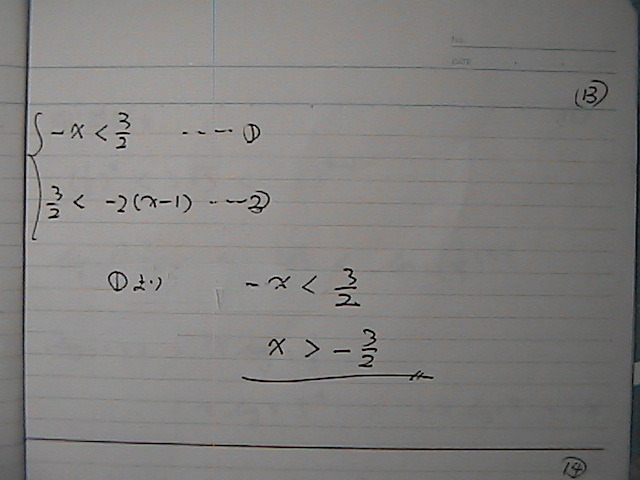 No.
DATE
⑬
-x < 3/2 ‥‥ ①
3/2 < -2(x-1) ‥‥ ②
①より -x < 3/2
x > -3/2
⑭